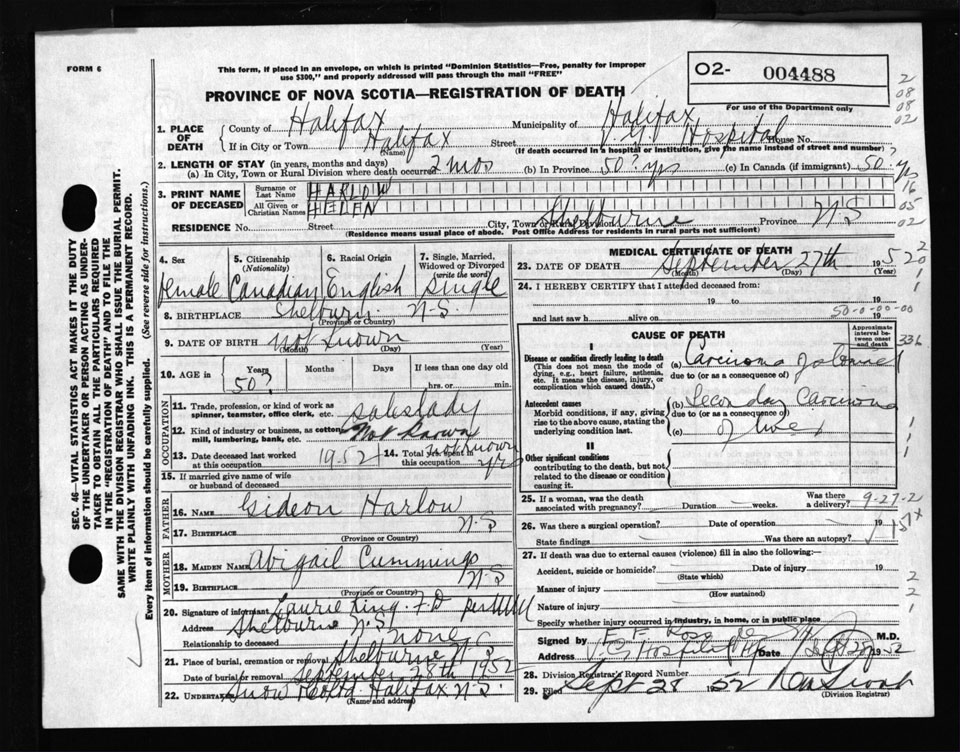 FORM 6
This form, if placed in an envelope, on which is printed "Dominion Statistics—Free, penalty for improper
use $300," and properly addressed will pass through the mail "FREE"
PROVINCE OF NOVA SCOTIA—REGISTRATION OF DEATH
02- 004488
For use of the Department only
2
08
08
02
1. PLACE OF DEATH
County of Halifax Municipality of Halifax
If in City or Town Halifax Street V. G. Hospital House No.
(Name) (If death occurred in a hospital or institution, give the name instead of street and number)
2. LENGTH OF STAY (in years, months and days)
(a) In City, Town or Rural Division where death occurred 2 mos (b) In Province 50? yrs (c) In Canada (if immigrant) 50? yrs
3. PRINT NAME OF DECEASED
Surname or Last Name HARLOW
All Given or Christian Names HELEN
16
05
02
RESIDENCE No. Street City, Town or Rural Division Shelbourne Province N.S
(Residence means usual place of abode. Post Office Address for residents in rural parts not sufficient)
4. Sex 5. Citizenship (Nationality) 6. Racial Origin 7. Single, Married, Widowed or Divorced (write the word)
Female Canadian English Single
8. BIRTHPLACE Shelbourn N.S.
(Province or Country)
9. DATE OF BIRTH Not Known
(Month) (Day) (Year)
10. AGE in Years Months Days If less than one day old
50? hrs. or min.
OCCUPATION
11. Trade, profession, or kind of work as spinner, teamster, office clerk, etc. saleslady
12. Kind of industry or business, as cotton mill, lumbering, bank, etc. Not Known
13. Date deceased last worked at this occupation 1952 14. Total yrs. spent in this occupation not known yrs
15. If married give name of wife or husband of deceased
FATHER
16. Name Gideon Harlow
17. Birthplace N.S
(Province or Country)
MOTHER
18. Maiden Name Abigail Cummings
19. Birthplace N.S
(Province or Country)
20. Signature of informant Laurie King F.D per
Address Shelbourne N.S
Relationship to deceased none
21. Place of burial, cremation or removal Shelbourne N.S
Date of burial or removal September 28th 1952
22. Undertaker Snow Halifax N.S.
(Name and address)
MEDICAL CERTIFICATE OF DEATH
23. DATE OF DEATH September 27th 1952
(Month) (Day)
24. I HEREBY CERTIFY that I attended deceased from
19 to 19
and last saw h alive on 19
50-0-00-00
CAUSE OF DEATH
Approximate interval between onset and death
336
I
Disease or condition directly leading to death
(This does not mean the mode of dying, e.g., heart failure, asthenia, etc. It means the disease, injury, or complication which caused death.)
(a) Carcinoma of
due to (or as a consequence of)
Antecedent causes
Morbid conditions, if any, giving rise to the above cause, stating the underlying condition last.
(b) Secondary Carcinoma
due to (or as a consequence of)
(c) of liver
II
Other significant conditions
contributing to the death, but not related to the disease or condition causing it.
25. If a woman, was the death associated with pregnancy? Duration weeks. Was there a delivery?
9-27-2
26. Was there a surgical operation? Date of operation 19
State findings Was there an autopsy?
27. If death was due to external causes (violence) fill in also the following:—
Accident, suicide or homicide? Date of injury 19
(State which)
Manner of injury
(How sustained)
Nature of injury
Specify whether injury occurred in industry, in home, or in public place
Signed by E F Ross M.D.
Address V. G. Hospital Date 1952
28. Division Registrar's Record Number
29. Filed Sept 28 1952
(Division Registrar)
SEC. 46—VITAL STATISTICS ACT MAKES IT THE DUTY
OF THE UNDERTAKER OR PERSON ACTING AS UNDER-
TAKER TO OBTAIN ALL THE PARTICULARS REQUIRED
IN THE "REGISTRATION OF DEATH" AND TO FILE THE
SAME WITH THE DIVISION REGISTRAR WHO SHALL ISSUE THE BURIAL PERMIT.
WRITE PLAINLY WITH UNFADING INK. THIS IS A PERMANENT RECORD.
Every item of information should be carefully supplied. (See reverse side for instructions.)